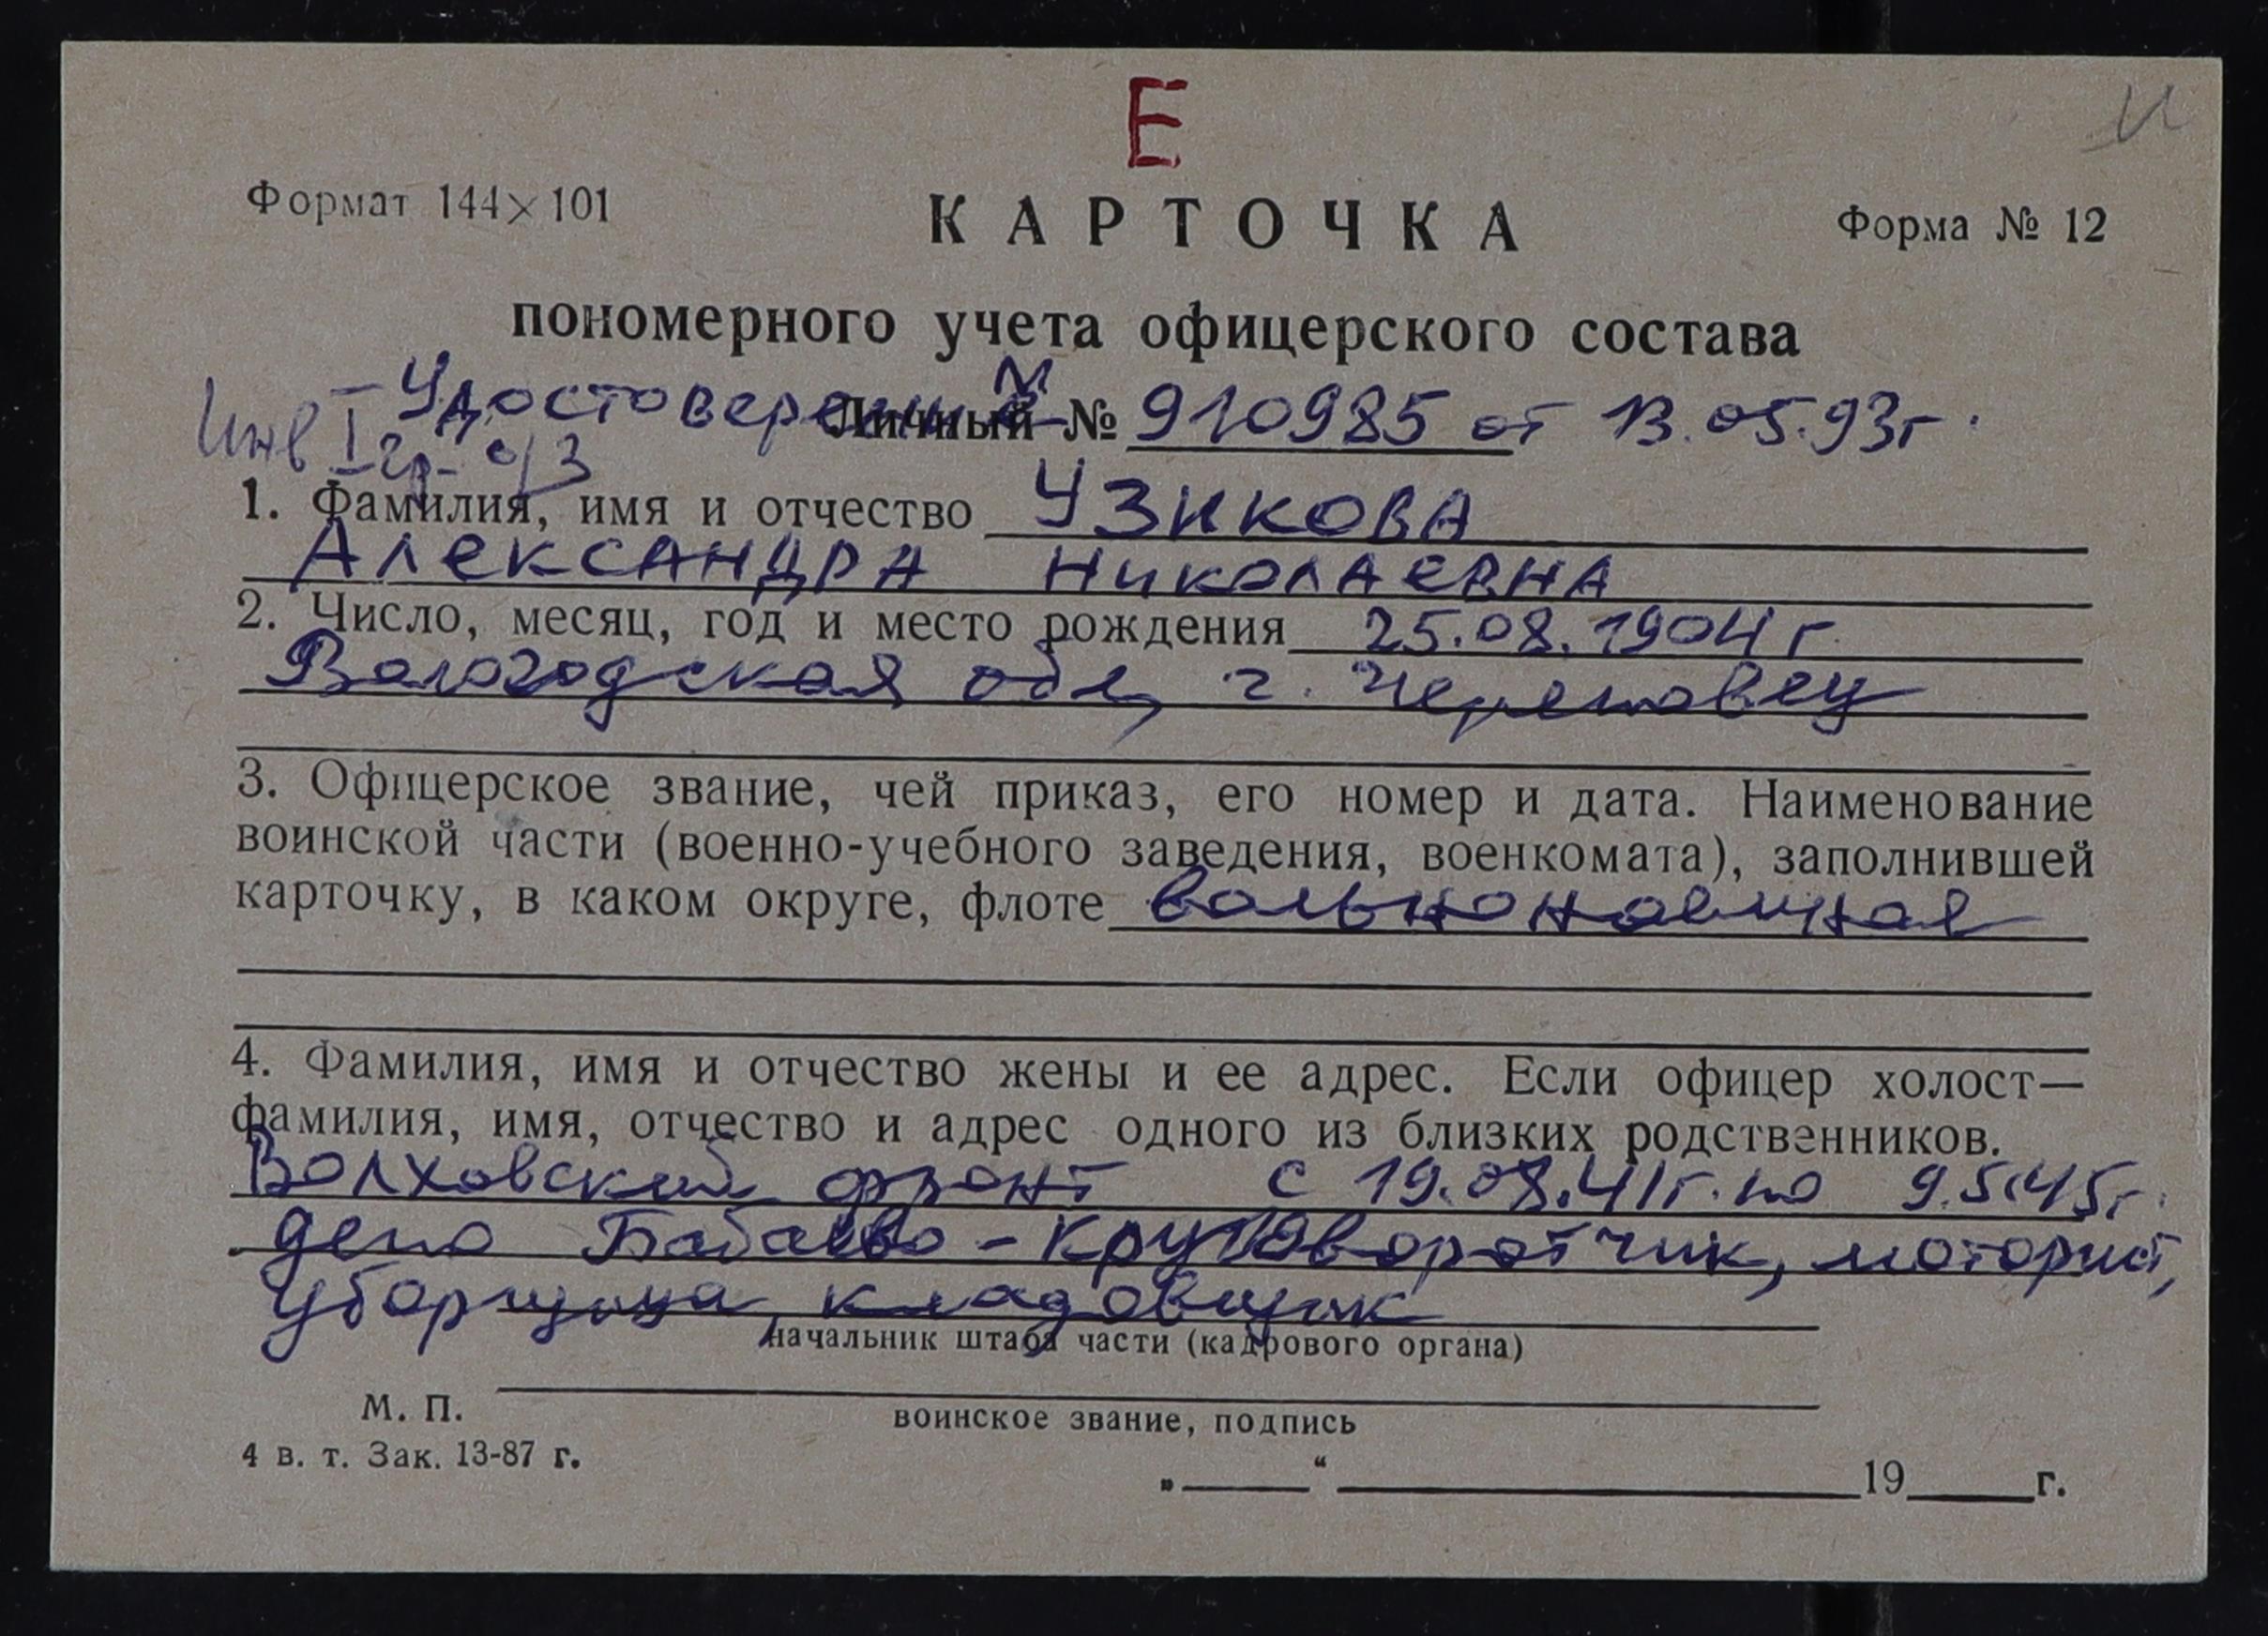 Е
И
Формат 144×101
КАРТОЧКА
Форма № 12
пономерного учета офицерского состава
Удостоверение Личный № 910985 от 13.05.93г.
Инв I гр. о/з
1. Фамилия, имя и отчество Узикова
Александра Николаевна
2. Число, месяц, год и место рождения 25.08.1904 г.
Вологодская обл, г. Череповец
3. Офицерское звание, чей приказ, его номер и дата. Наименование
воинской части (военно-учебного заведения, военкомата), заполнившей
карточку, в каком округе, флоте вольнонаемная
4. Фамилия, имя и отчество жены и ее адрес. Если офицер холост—
фамилия, имя, отчество и адрес одного из близких родственников.
Волховский фронт с 19.08.41г. по 9.5.45г.
депо Бабаево - круговоротчик, моторист,
уборщица, кладовщик
начальник штаба части (кадрового органа)
М. П.
воинское звание, подпись
4 в. т. Зак. 13-87 г.
„ “ 19 г.